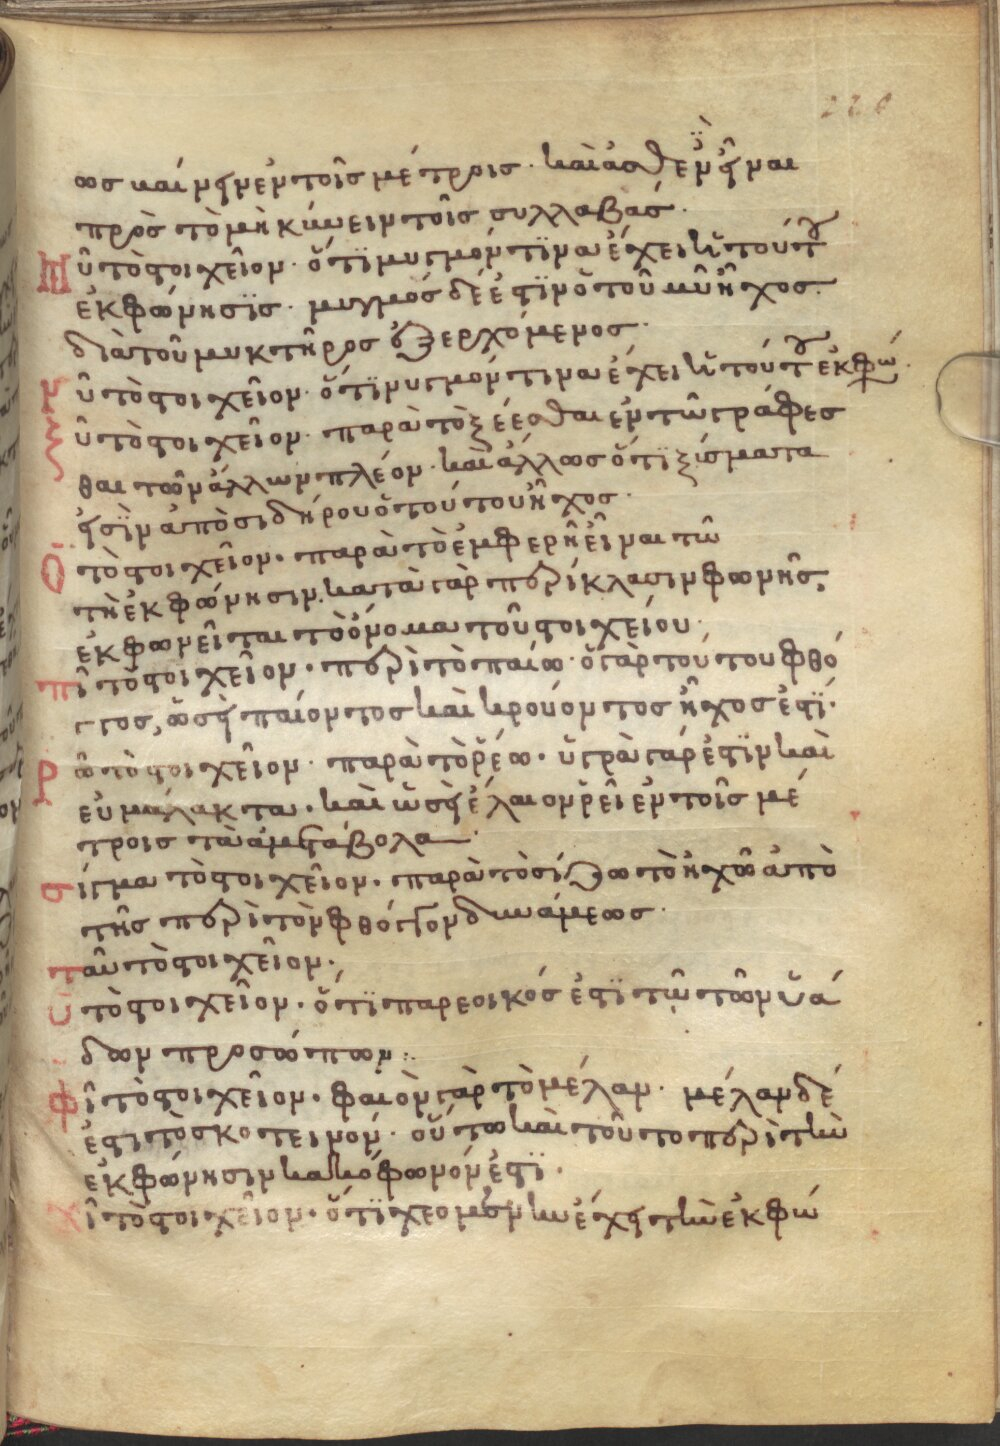 226
ως καὶ μένειν ἐν τοῖς μέτροις · καὶ ἀσθενῆ εἶναι
πρὸς τὸ μηκύνειν τοῖς συλλαβάς ·
Μῦ τὸ στοιχεῖον · ὅτι μυγμόν τινα ἔχει ἡ τούτου
ἐκφώνησις · μυγμὸς δέ ἐστιν ὁ τοῦ μῦ ἦχος
διὰ τοῦ μυκτῆρος ἐξερχόμενος ·
νῦ τὸ στοιχεῖον · ὅτι νυγμόν τινα ἔχει ἡ τούτου ἐκφώ
ξῦ τὸ στοιχεῖον · παρὰ τὸ ξέεσθαι ἐν τῷ γράφεσ
θαι τῶν ἄλλων πλέον · καὶ ἄλλως ὅτι ξίσματα
εἰσὶν ἀπὸ σιδήρου ὁ τούτου ἦχος ·
Ὸ τὸ στοιχεῖον · παρὰ τὸ ἐμφερῆ εἶναι τῶ
τῆ ἐκφώνησιν · κατὰ γὰρ περίκλασιν φωνῆς
ἐκφωνεῖται τὸ ὄνομα τοῦ στοιχείου ·
πῖ τὸ στοιχεῖον · περὶ τὸ παίω · ὁ γὰρ τούτου φθό
γγος, ὡσεὶ παίοντος καὶ κρούοντος ἦχος ἐστί ·
ρῶ τὸ στοιχεῖον · παρὰ τὸ ῥέω · ὑγρὰ γάρ ἐστιν καὶ
εὐμάλακτα · καὶ ὡσεὶ ἔλαιον ῥεῖ ἐν τοῖς μέ
τροις τὰ ἀμετάβολα ·
σίγμα τὸ στοιχεῖον · παρὰ τὸ σίζω τὸ ἠχῶ ἀπὸ
τῆς περὶ τὸν φθόγγον δυνάμεως ·
ταῦ τὸ στοιχεῖον ·
υ τὸ στοιχεῖον · ὅτι παρεοικός ἐστι τῷ τῶν ὑά
δων προσώπων :
φῖ τὸ στοιχεῖον · φαιὸν γὰρ τὸ μέλαν · μέλαν δέ
ἐστι τὸ σκοτεινόν · οὕτω καὶ τοῦτο περὶ τὴν
ἐκφώνησιν κακόφωνόν ἐστι ·
χῖ τὸ στοιχεῖον · ὅτι χεομένην ἔχει τὴν ἐκφώ